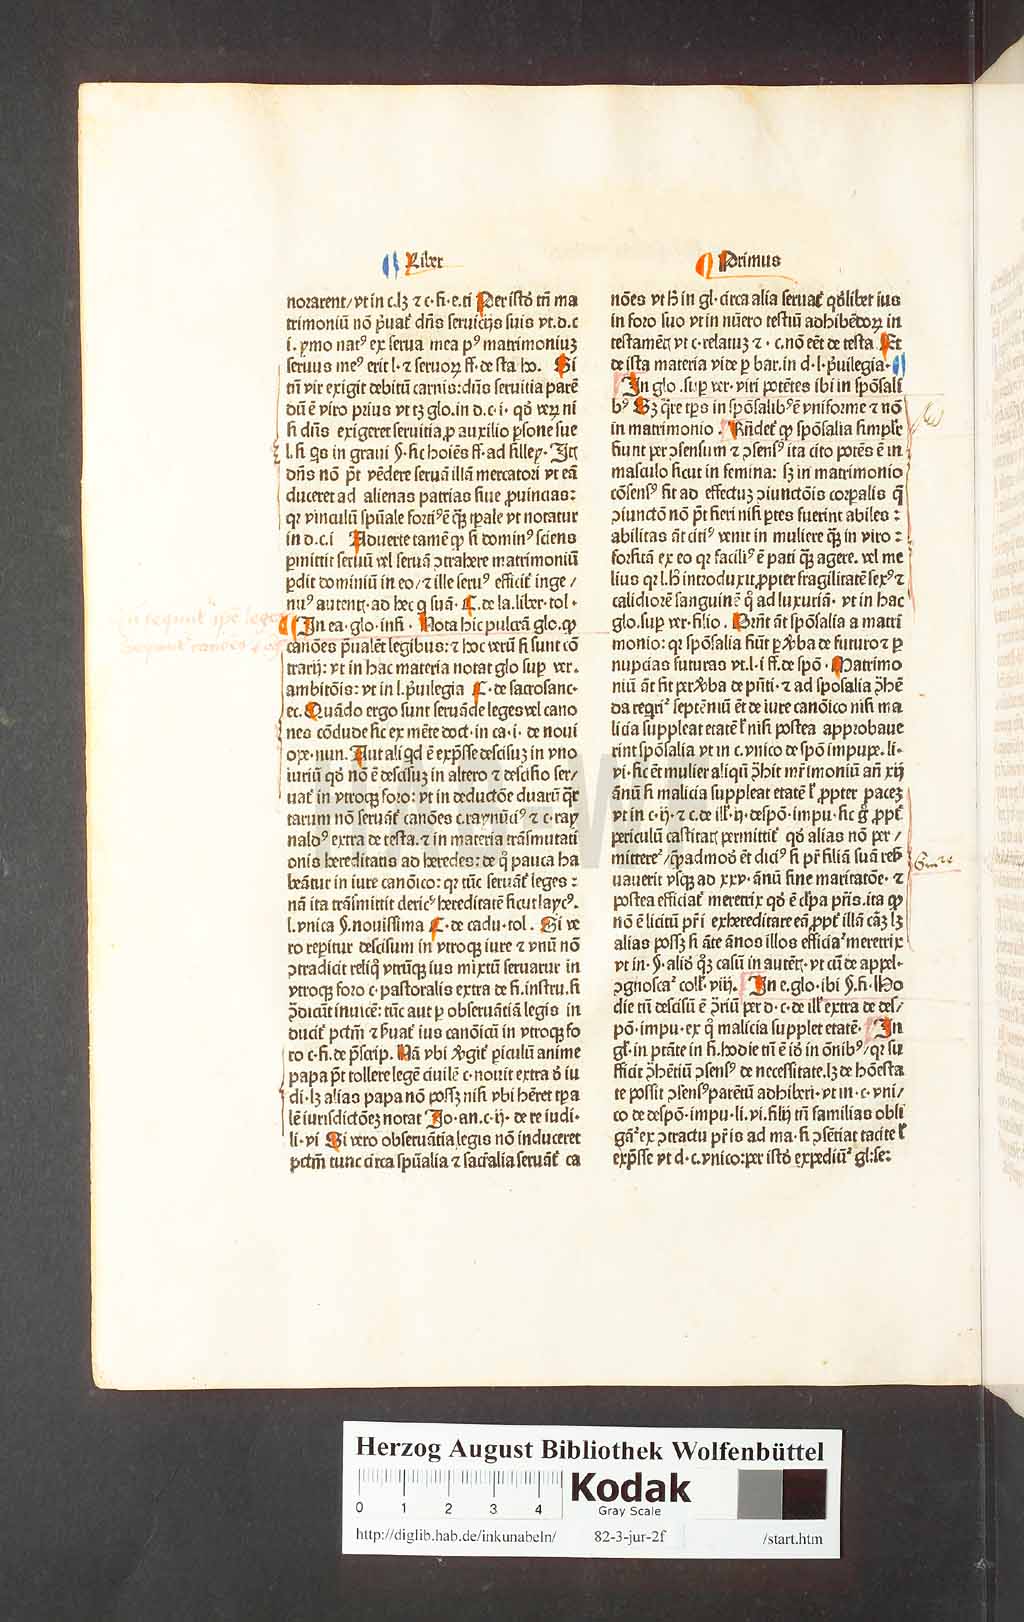 Liber
Primus
norarent/ vt in c.lꝫ ⁊ c·fi·e.ti Per istō tn̄ ma
trimoniū nō p̄uat᷑ dn̄s seruicijs suis vt.d.c
i. p̱mo natꝰ ex serua mea pꝰ matrimoniuꝫ
seruus meꝰ erit l·⁊ seruoꝝ ff.de sta ho. Si
tn̄ vir exigit debitū carnis: dn̄s seruitia parē
dū ē viro prius vt tꝫ glo.in d.c·i· qd̓ veꝝ ni
si dn̄s exigeret seruitia ꝓ auxilio p̱sone sue
l.si q̇s in graui §.sic hoiēs ff·ad silley· Itꝫ
dn̄s nō p̄t vēdere seruā illā mercatori vt eā
duceret ad alienas patrias siue ꝓuincias:
qr vinculū sp̄uale fortiꝰ ē q̄ꝫ tp̱ale vt notatur
in d.c.i Aduerte tamē ꝙ si dominꝰ sciens
p̱mittit seruū vel seruā ꝯtrahere matrimoniū
p̱dit dominiū in eo/ ⁊ ille seruꝰ efficit᷑ inge/
nuꝰ autent·ad hec q suā· C.de la.liber·tol·
In ea·glo·infi· Nota hic pulcrā glo.ꝙ
canōes p̄ualēt legibus:⁊ hoc verū si sunt cō
trarij: vt in hac materia notat glo sup ver·
ambitōis: vt in l.p̄uilegia C·de sacrosanc·
ec. Quādo ergo sunt seruāde leges vel cano
nes cōclude sic ex mēte doct·in ca·i·de noui
ope·nun. Aut aliquid ē exp̄sse descisuꝫ in vno
iuriū qd̓ nō ē descisuꝫ in altero ⁊ descisio ser/
uat᷑ in vtroqꝫ foro: vt in deductōe duarū q̄r
tarum nō seruāt᷑ canōes c.raynūciꝰ ⁊ c·ray
naldꝰ extra de testa.⁊ in materia trāsmutati
onis hereditatis ad heredes: de q̇ pauca ha
beātur in iure canōico: qr tūc seruāt᷑ leges:
nā ita trāsmittit clericꝰ hereditatē sicut laycꝰ.
l.vnica §.nouissima C·de cadu·tol. Si ve
ro repitur descisum in vtroqꝫ iure ⁊ vnū nō
ꝯtradicit reliq̇ vtrūqꝫ ius mixtū seruatur in
vtroqꝫ foro c·pastoralis extra de fi.instru.si
ꝯ̄dicūt inuicē: tūc aut p obseruātiā legis in
ducit᷑ pctm̄ ⁊ s̓uat᷑ ius canōicū in vtroqꝫ fo
ro c·fi·de p̄scrip. Nā vbi v̓git᷑ piculū anime
papa p̄t tollere legē ciuilē c·nouit extra d̓ iu
di.lꝫ alias papa nō possꝫ nisi vbi hēret tp̱a
lē iurisdictōeꝫ notat Jo·an.c·ij·de re iudi·
li·vi Si vero obseruātia legis nō induceret
pctm̄ tunc circa sp̄ualia ⁊ sacr̄alia seruāt᷑ ca
nōes vt h̓ in gl·circa alia seruat᷑ qd̓libet ius
in foro suo vt in nūero testiū adhibēdoꝝ in
testamēt̄ vt c·relatuꝫ ⁊ ·c.nō eēt de testa. Et
de ista materia vide p bar.in d·l·p̄uilegia·
In glo.sup ver·viri potētes ibi in spōsali
bꝰ Sꝫ q̄re tp̱s in spōsalibꝰ ē vniforme ⁊ nō
in matrimonio. Rn̄det᷑ ꝙ spōsalia simpl̓r
fiunt per ꝯsensum ⁊ ꝯsensꝰ ita cito potēs ē in
masculo sicut in femina: sꝫ in matrimonio
cōsensꝰ fit ad effectuꝫ ꝯiunctōis corp̱alis q̄
ꝯiunctō nō p̄t fieri nisi p̱tes fuerint abiles:
abilitas āt citiꝰ venit in muliere q̄ꝫ in viro:
forsitā ex eo qr faciliꝰ ē pati q̄ꝫ agere. vel me
lius qr l.h̓ introduxit ꝓpter fragilitatē sexꝰ ⁊
calidiorē sanguinē q̇ ad luxuriā· vt in hac
glo.sup ver·filio. Dr̄nt āt spōsalia a matri
monio: qr spōsalia fiūt p v̓ba de futuro ⁊ p
nupcias futuras vt.l·i ff.de spō· Matrimo
niū āt fit per v̓ba de pn̄ti·⁊ ad sposalia ꝯ̄hē
da reqrit᷑ septēniū ēt de iure canōico nisi ma
licia suppleat etatē l̓ nisi postea approbaue
rint spōsalia vt in c.vnico de spō impupe.li·
vi·sic ēt mulier aliqn̄ ꝯ̄hit mr̄imoniū an̄ xij
ānū si malicia suppleat etatē l̓ ꝓpter paceꝫ
vt in c·ij·⁊ c.de ill̓·ij·despō·impu·sic g̊ ꝓpt᷑
periculū castitat᷑ permittit᷑ qd̓ alias nō per/
mittere᷑ /q̄admod̓ ēt dicit᷑ si pr̄ filiā suā reti
uauerit vsqꝫ ad xxv·ānū sine maritatōe·⁊
postea efficiat᷑ meretrix qd̓ ē cl̓pa pr̄is.ita ꝙ
nō ē licitū pr̄i exhereditare eā ꝓpt᷑ illā cāꝫ lꝫ
alias possꝫ si āte ānos illos efficiat᷑ meretrix
vt in·§·aliō q̇ꝫ casū in autēt᷑·vt cū de appel·
ꝯgnoscat᷑ coll̓.viij. In e.glo·ibi §.si Ho
die tn̄ descisū ē ꝯ̄riū per d·c·de ill̓ extra de des/
pō·impu·ex q̇ malicia supplet etatē· In
gl̓·in ptāte in fi.hodie tn̄ ē id̓ in ōnibꝰ/ qr su
fficit ꝯ̄hētiū ꝯsensꝰ de necessitate.lꝫ de hōesta
te possit ꝯsensꝰ parētū adhiberi·vt in·c·vni/
co de despō·impu·li.vi.filij tn̄ familias obli
gāt᷑ ex ꝯtractu pr̄is ad ma·si ꝯsētiat tacite l̓
exp̄sse vt d·c.vnico: per istō expediūt᷑ gl:se:
Herzog August Bibliothek Wolfenbüttel
Kodak
Gray Scale
0 1 2 3 4
http://diglib.hab.de/inkunabeln/ 82-3-jur-2f /start.htm
HAB-WF